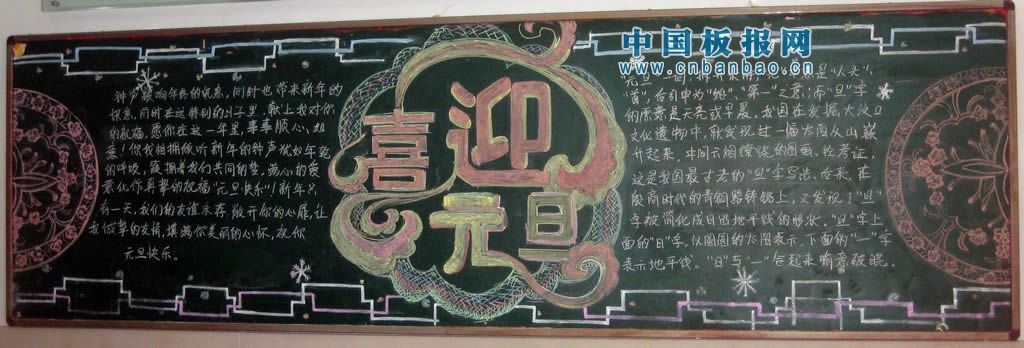 钟声敲响年终的讯息,同时也带来新年的
讯息,同时在这特别的日子里,献上我对你
的祝福,愿你在这一年里,事事顺心,如
意!你我相拥倾听新年的钟声犹如年轮
的呼吸,簇拥着我们共同的梦,满心的爱
意化作真挚的祝福"元旦快乐"!新年只
有一天,我们的友谊永存,敞开你的心扉,让
我诚挚的友情,填满你美丽的心怀,祝你
元旦快乐。
喜迎
元旦
中国板报网
www.cnbanbao.cn
是"人头",
"首",后引申为"始"、"第一"之意;而"旦"字
的原意是天亮或早晨。我国在发掘大汶口
文化遗物中,就发现过一幅太阳从山巅
升起来,中间云烟缭绕的图画。经考证,
这是我国最古老的"旦"字写法。后来,在
殷商时代的青铜器铸铭上,又发现了"旦"
字被简化成日出地平线的形状。"旦"字上
面的"日"字,以圆圆的太阳表示,下面的"一"字
表示地平线。"日"与"一"合起来喻意破晓。